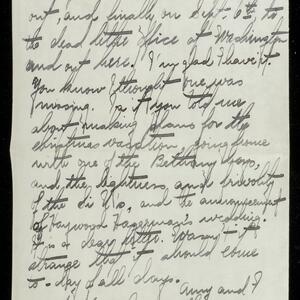 out, and finally on Sept. 6th, to
the dead letter office at Washington
and out here. I'm glad I have it.
You know I thought one was
missing. In it you told me
about making plans for the
Christmas vacation, going home
with one of the Bethany boys,
and the lightness, and frivolity
of the and the announcement
of Haywood Hagerman's wedding.
It is a dear letter. Wasn't it
strange that it should come
to-day of all days.
Amy and I